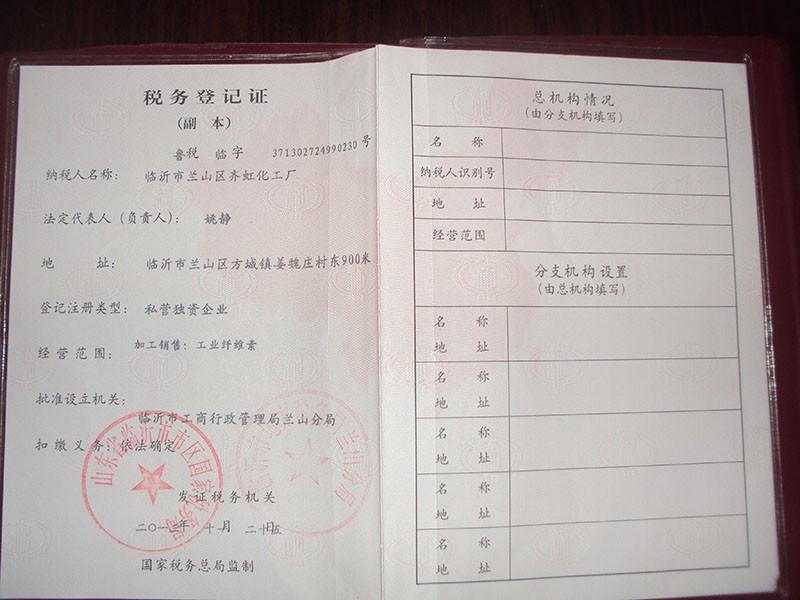 税务登记证
(副 本)
鲁税 临 字 371302724990230 号
纳税人名称： 临沂市兰山区齐虹化工厂
法定代表人（负责人）： 姚静
地 址： 临沂市兰山区方城镇姜魏庄村东900米
登记注册类型： 私营独资企业
经营范围： 加工销售：工业纤维素
批准设立机关：
临沂市工商行政管理局兰山分局
扣缴义务：依法确定
发证税务机关
十月 二十五
国家税务总局监制
总机构情况
(由分支机构填写)
名 称
纳税人识别号
地 址
经营范围
分支机构设置
(由总机构填写)
名 称
地 址
名 称
地 址
名 称
地 址
名 称
地 址
名 称
地 址